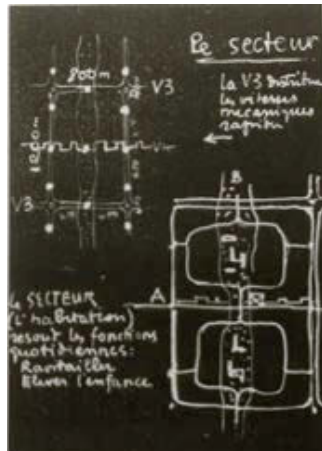 le secteur
800m
V3
La V3 distribue
les vitesses
mécaniques
rapides
1200m
V3
B
Le SECTEUR
A
(l'habitation)
reçoit les fonctions
quotidiennes:
Ravitailler
Elever l'enfance